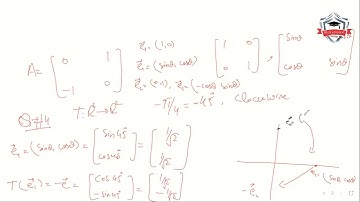 A = [ 0 1
-1 0 ]
e⃗₁ = (1,0)
e⃗₁ = (sinθ, cosθ)
e⃗₂ = (0,1), e⃗₂ = (-cosθ, sinθ)
[ 1 0
0 1 ] , [ sinθ
cosθ sinθ ]
-π/4 = -45°, Clockwise
T: R² → R²
Q#4
e⃗₁ = (sinθ, cosθ) = [ sin45° cos45° ] = [ 1/√2 1/√2 ]
T(e⃗₁) = -e⃗ = [ cos45° -sin45° ] = [ 1/√2 -1/√2 ]
-e⃗₂
(sinθ, cosθ)